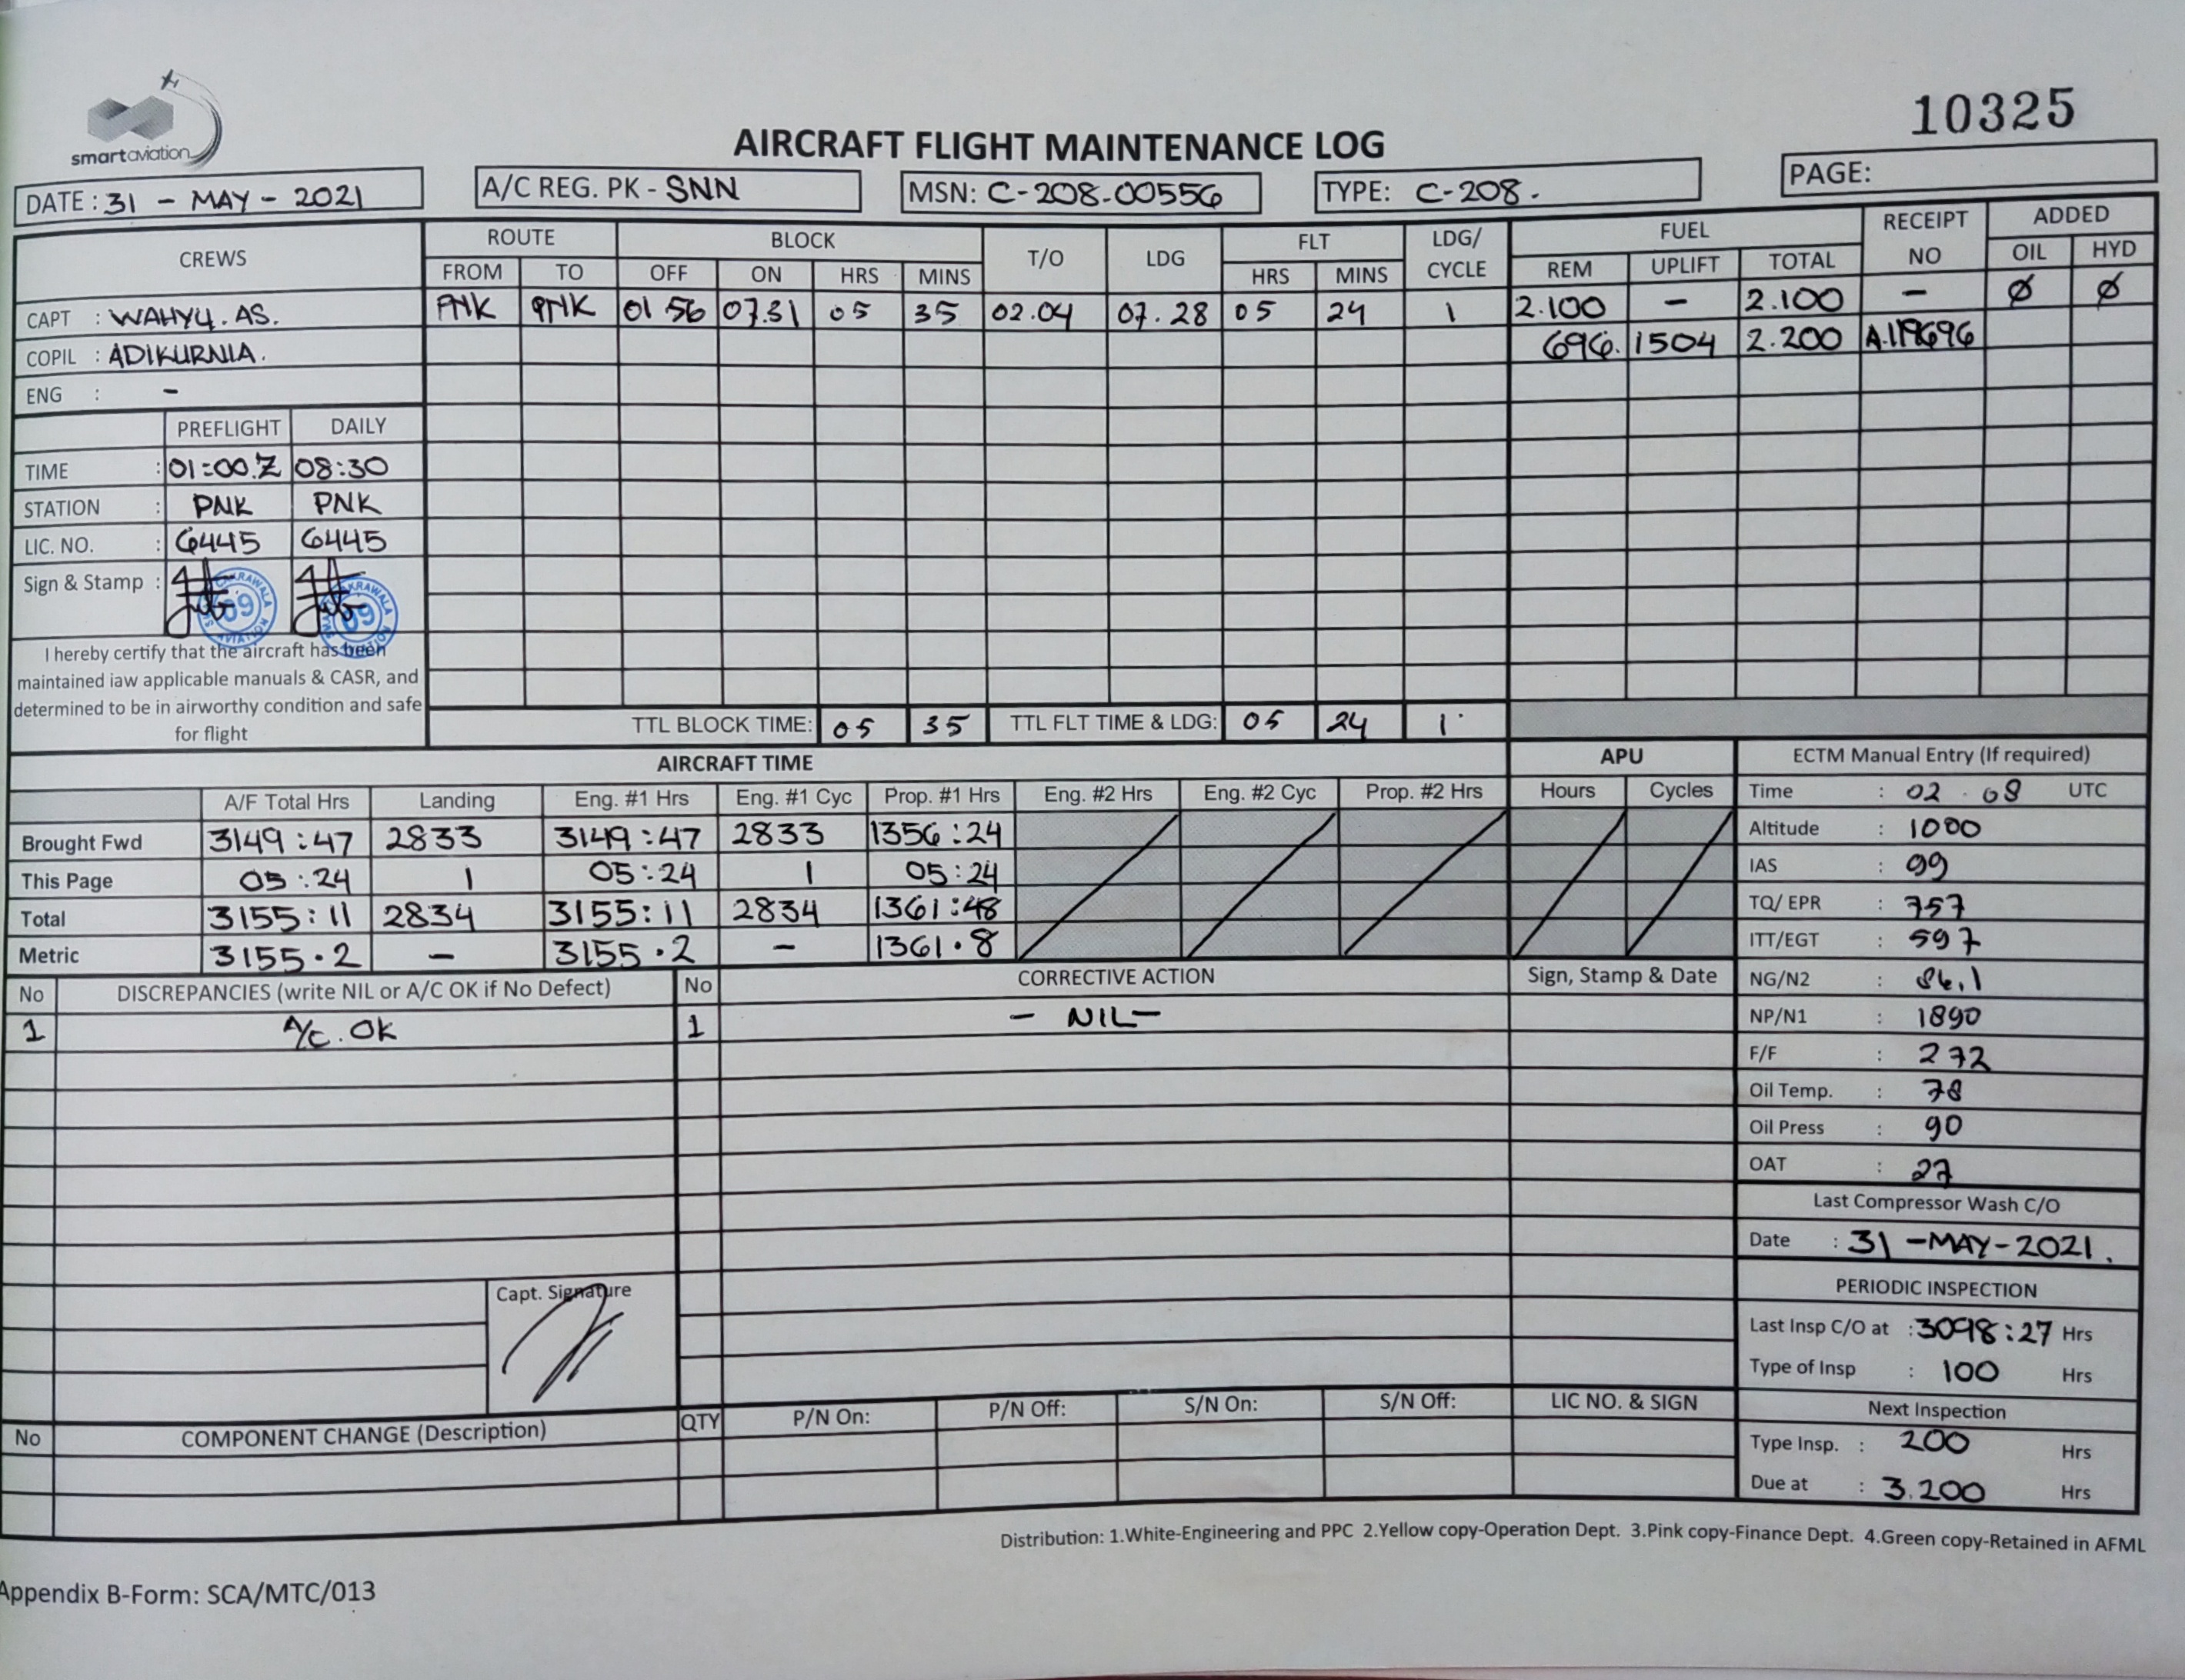 smartaviation
10325
AIRCRAFT FLIGHT MAINTENANCE LOG
DATE : 31 - MAY - 2021 A/C REG. PK - SNN MSN: C-208-00556 TYPE: C-208. PAGE:
CREWS ROUTE BLOCK T/O LDG FLT LDG/ CYCLE FUEL RECEIPT NO ADDED
FROM TO OFF ON HRS MINS HRS MINS REM UPLIFT TOTAL OIL HYD
CAPT : WAHYU. AS. PNK PNK 01 56 07.31 05 35 02.04 07.28 05 24 1 2.100 - 2.100 - Ø Ø
COPIL : ADIKURNIA. 696. 1504 2.200 A.119696
ENG : -
PREFLIGHT DAILY
TIME : 01:00.Z 08:30
STATION : PNK PNK
LIC. NO. : 6445 6445
Sign & Stamp :
I hereby certify that the aircraft has been
maintained iaw applicable manuals & CASR, and
determined to be in airworthy condition and safe
for flight
TTL BLOCK TIME: 05 35 TTL FLT TIME & LDG: 05 24 1
AIRCRAFT TIME APU
A/F Total Hrs Landing Eng. #1 Hrs Eng. #1 Cyc Prop. #1 Hrs Eng. #2 Hrs Eng. #2 Cyc Prop. #2 Hrs Hours Cycles
Brought Fwd 3149:47 2833 3149:47 2833 1356:24
This Page 05:24 1 05:24 1 05:24
Total 3155:11 2834 3155:11 2834 1361:48
Metric 3155.2 - 3155.2 - 1361.8
ECTM Manual Entry (If required)
Time : 02 08 UTC
Altitude : 1000
IAS : 99
TQ/ EPR : 757
ITT/EGT : 597
NG/N2 : 86.1
NP/N1 : 1890
F/F : 272
Oil Temp. : 78
Oil Press : 90
OAT : 27
Last Compressor Wash C/O
Date : 31 -MAY-2021.
PERIODIC INSPECTION
Last Insp C/O at : 3098:27 Hrs
Type of Insp : 100 Hrs
Next Inspection
Type Insp. : 200 Hrs
Due at : 3.200 Hrs
No DISCREPANCIES (write NIL or A/C OK if No Defect) No CORRECTIVE ACTION Sign, Stamp & Date
1 A/C. OK 1 - NIL-
Capt. Signature
No COMPONENT CHANGE (Description) QTY P/N On: P/N Off: S/N On: S/N Off: LIC NO. & SIGN
Distribution: 1.White-Engineering and PPC 2.Yellow copy-Operation Dept. 3.Pink copy-Finance Dept. 4.Green copy-Retained in AFML
Appendix B-Form: SCA/MTC/013